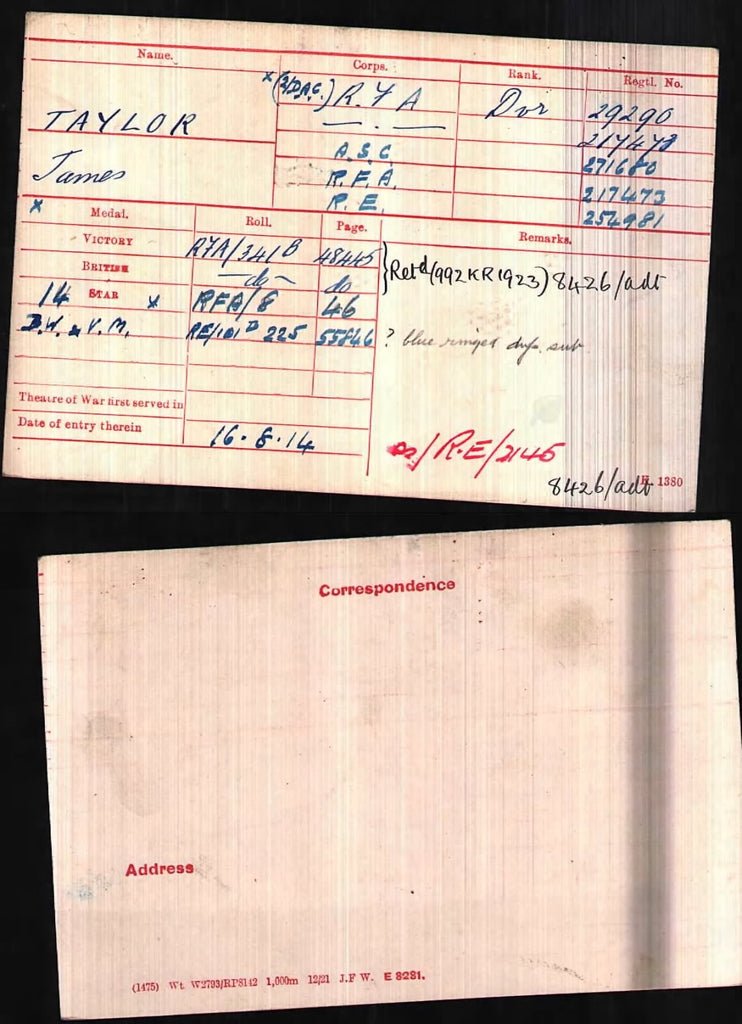 Name. Corps. Rank. Regtl. No.
x (2/D.A.C.) R.F.A Dvr 29290
TAYLOR — . — 217473
James A.S.C. 271680
R.F.A. 217473
R.E. 254981
x Medal. Roll. Page. Remarks.
VICTORY RFA/341B 48445
BRITISH —do— do } Retd (992 KR 1923) 8426/adt
14 STAR x RFA/8 46
B.W. & V.M. RE/101 B 225 55846 ? blue ringed sub
Theatre of War first served in
Date of entry therein 16.8.14
/R.E/2145
8426/adt
H. 1380
Correspondence
Address
(1475) Wt. W2793/RP8142 1,000m 12/21 J.F W. E 8281.